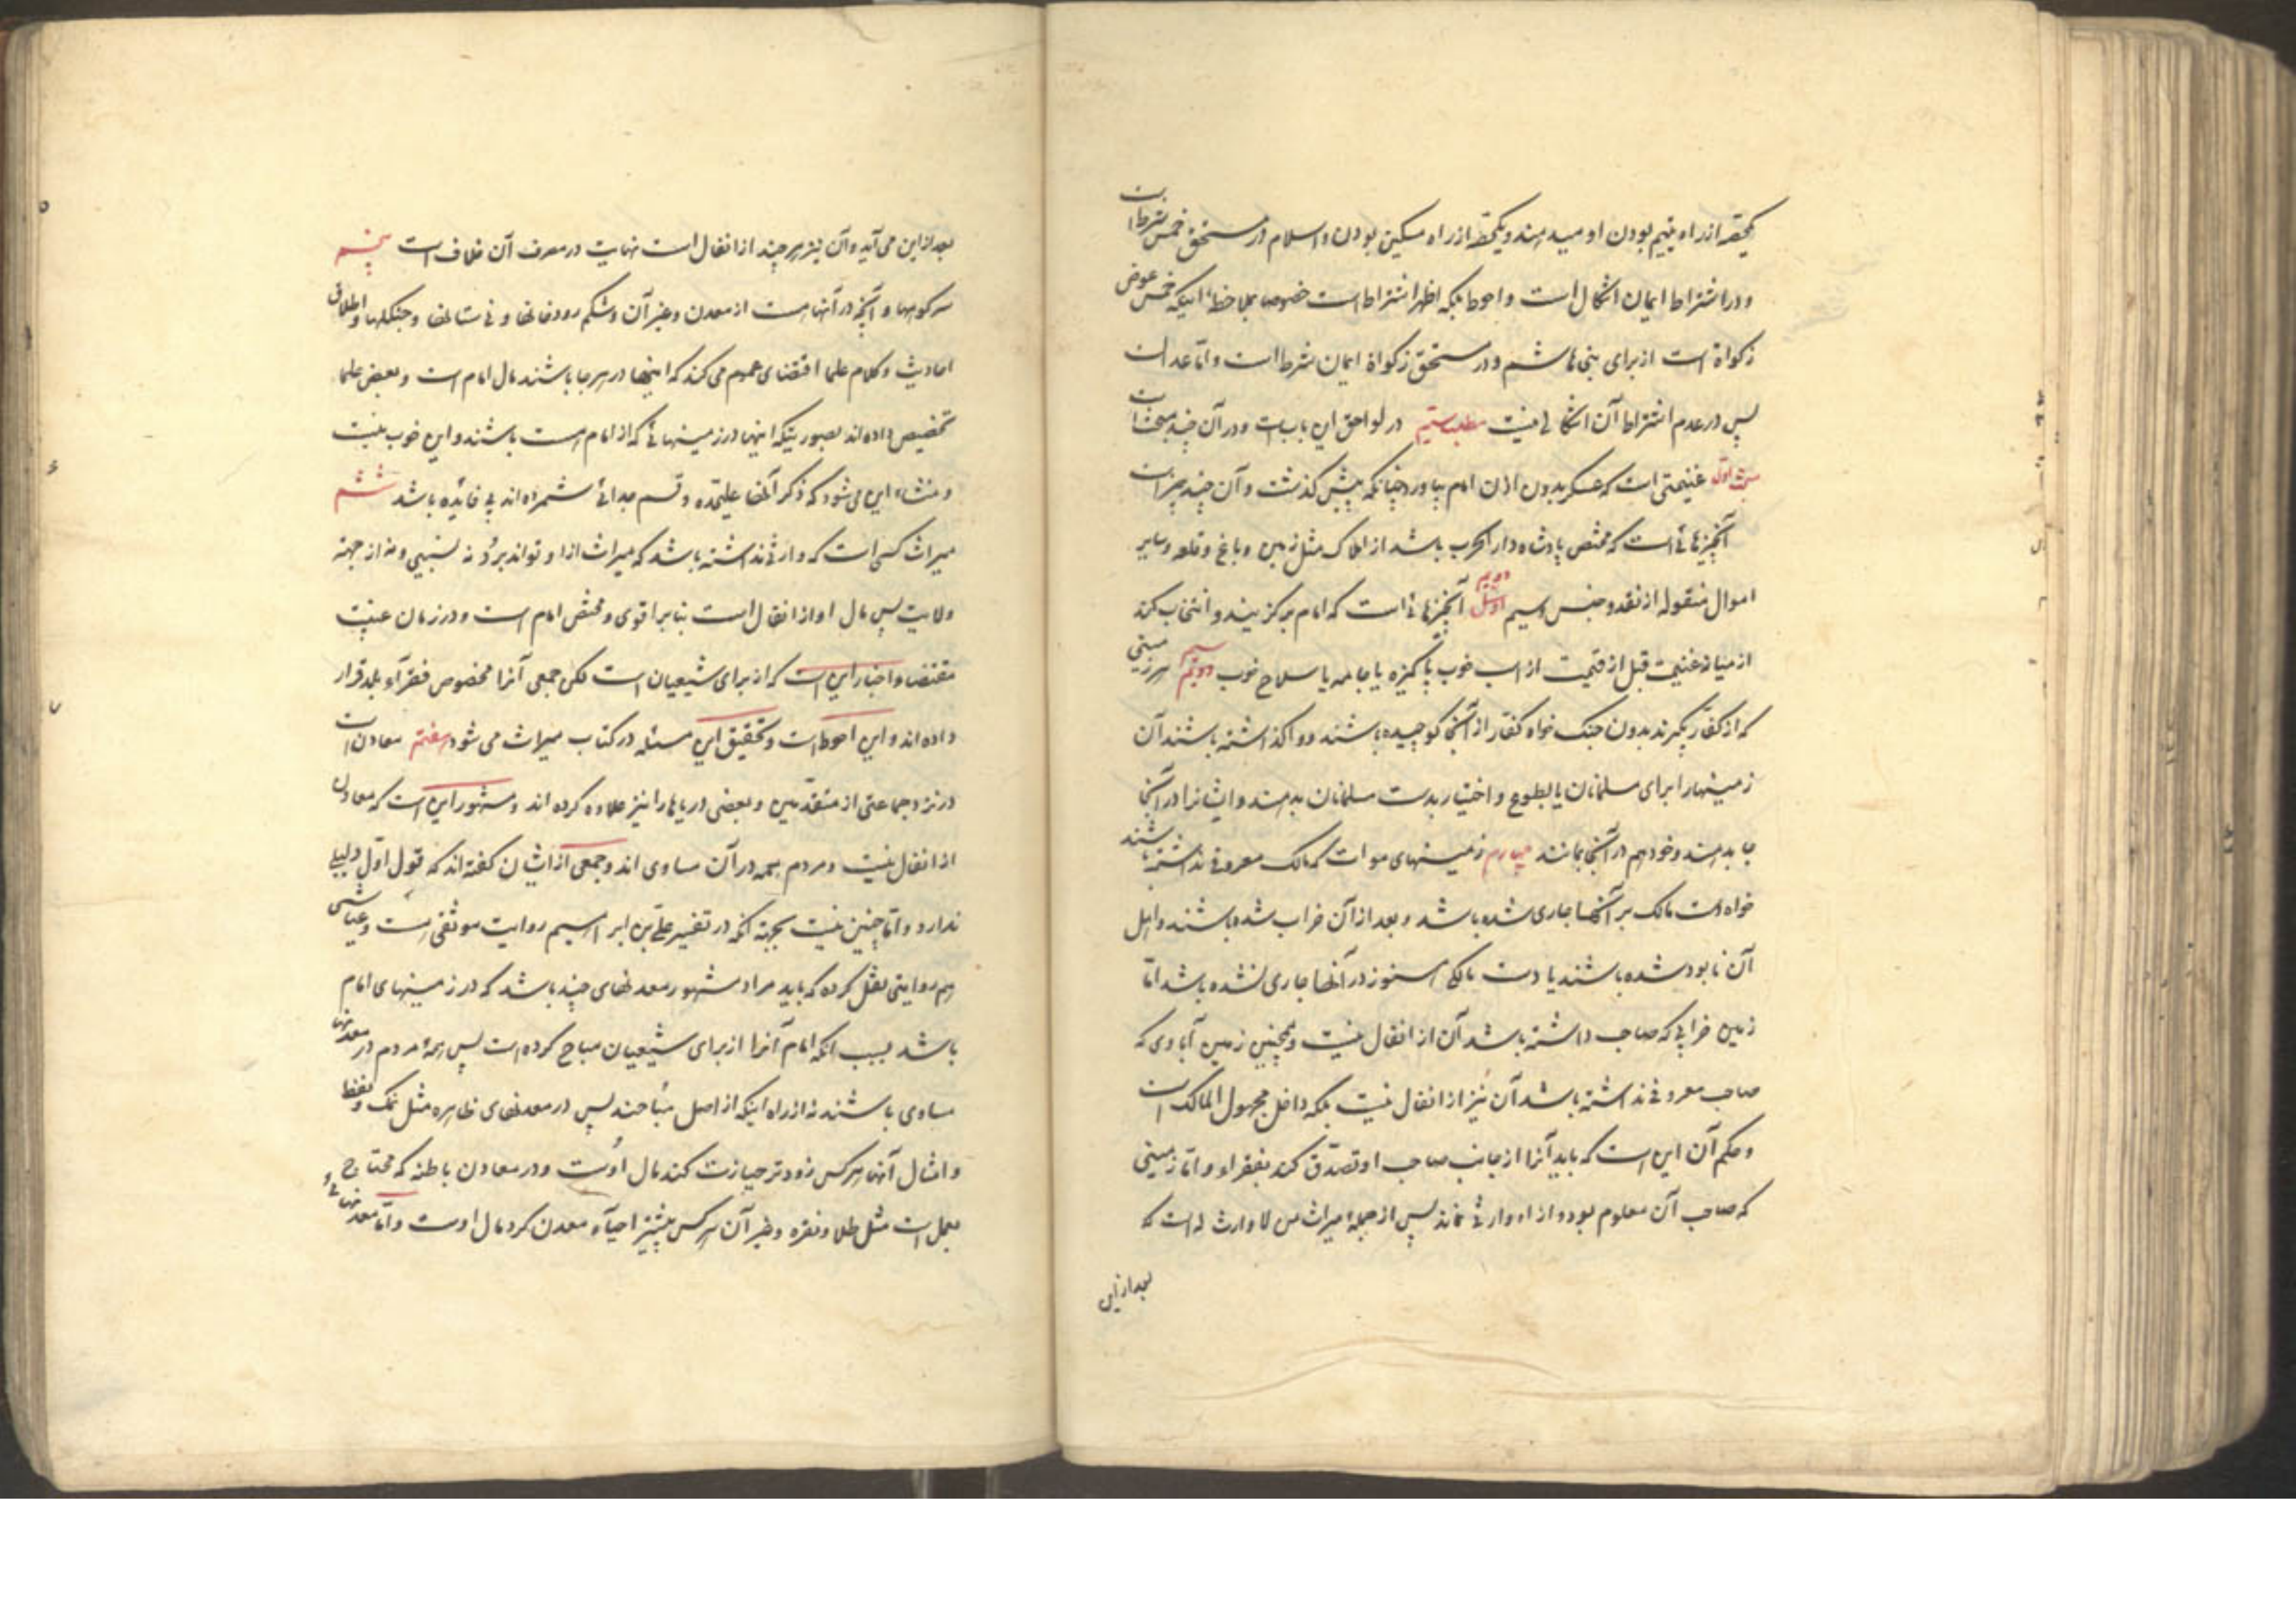 یکحصه از راه یتیم بودن او میدهند و یکحصه از راه مسکین بودن و اسلام در مستحق خمس شرط است
و در اشتراط ایمان اشکال است و احوط بلکه اظهر اشتراط است خصوصا بملاحظهٔ اینکه خمس عوض
زکواة است از برای بنی هاشم و در مستحق زکواة ایمان شرط است و اما عدالت
پس در عدم اشتراط آن اشکالی نیست مطلب سیم در لواحق این باب است و در آن چند مبحث است
مبحث اول غنیمتی است که عسکر بدون اذن امام بیاورد چنانکه پیش گذشت و آن چند چیز است
آنچیزهائی است که مختص پادشاه دار الحرب باشد از املاک مثل زمین و باغ و قلعه و سایر
اموال منقوله از نقد و جنس و سیم دویم آنچیزهائی است که امام برگزیند و انتخاب کند
از میان غنیمت قبل از قسمت از اسب خوب پاکیزه یا جامه یا سلاح خوب سیم هر زمینی
که از کفار بگیرند بدون جنک خواه کفار از آنجا کوچیده باشند و واگذاشته باشند آن
زمینها را برای مسلمانان یا بالطوع و اختیار بدست مسلمانان بدهند و ایشانرا در آنجا
جا بدهند و خود هم در آنجا بمانند چهارم زمینهای موات که مالک معروفی نداشته باشند
خواه دست مالک بر آنها جاری شده باشد و بعد از آن خراب شده باشند و اهل
آن نابود شده باشند یا دست مالکی هنوز در آنها جاری نشده باشد اما
زمین خرابی که صاحب داشته باشد آن از انفال نیست و همچنین زمین آبادی که
صاحب معروفی نداشته باشد آن نیز از انفال نیست بلکه داخل مجهول المالک است
و حکم آن این است که باید آنرا از جانب صاحب او تصدق کند بفقراء و اما زمینی
که صاحب آن معلوم بوده و از او وارثی نماند پس از جملهٔ میراث من لا وارث له است که
بعد از این
بعد از این می آید و آن نیز هر چند از انفال است نهایت در مصرف آن خلاف است پنجم
سر کوهها و آنچه در آنهاست از معدن و غیر آن و شکم رودخانها و نی ستانها و جنکلها و اطلاق
احادیث و کلام علما اقتضای عموم می کند که اینها در هر جا باشند مال امام است و بعض علما
تخصیص داده اند بصورتیکه اینها در زمینهائی که از امام است باشند و این خوب نیست
و منشاء این می شود که ذکر آنها علیحده و قسم جدائی شمرده اند بی فایده باشد ششم
میراث کسی است که وارثی نداشته باشد که میراث از او تواند برد نه نسبی و نه از جهة
ولایت پس مال او از انفال است بنابر اقوی و مختص امام است و در زمان غیبت
مقتضا و اخبار این است که از برای شیعیان است لکن جمعی آنرا مخصوص فقرآء بلد قرار
داده اند و این احوط است و تحقیق این مسئله در کتاب میراث می شود هفتم معادن است
در نزد جماعتی از متقدمین و بعضی دریاها را نیز علاوه کرده اند و مشهور این است که معادن
از انفال نیست و مردم همه در آن مساوی اند و جمعی از ایشان گفته اند که قول اول دلیلی
ندارد و اما چنین نیست بجهة آنکه در تفسیر علی بن ابراهیم روایت موثقی هست و عیاشی
هم روایتی نقل کرده که باید مراد مشهور معدنهای چند باشد که در زمینهای امام
باشد بسبب آنکه امام آنرا از برای شیعیان مباح کرده است پس همهٔ مردم در معدنها
مساوی باشند نه از راه اینکه از اصل مباحند پس در معدنهای ظاهره مثل نمک و نفط
و امثال آنها هر کس زودتر حیازت کند مال اوست و در معادن باطنه که محتاج
بعمل است مثل طلا و نقره و غیر آن هر کس پیشتر احیآء معدن کرد مال اوست و اما معدنهائی